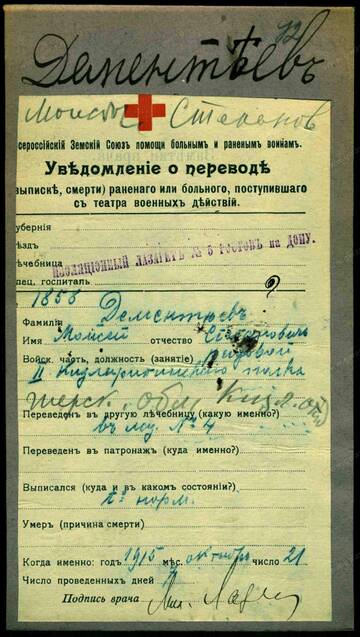 12
Дементѣевъ
Моисѣй Степанов
Всероссійскій Земскій Союзъ помощи больнымъ и раненымъ воинамъ.
Увѣдомленіе о переводѣ
(выпискѣ, смерти) раненаго или больного, поступившаго
съ театра военныхъ дѣйствій.
Губернія
Уѣздъ
Лѣчебница
Изоляціонный лазаретъ № 5 Ростовъ на Дону.
Спец. госпиталь
?
1855
Фамилія Дементьевъ
Имя Моисей отчество Степановъ
Войск. часть, должность (занятіе) Рядовой
II Кизляро-Гребенского полка
Терск. обл.
Переведенъ в другую лѣчебницу (какую именно?)
№ 4
Переведенъ въ патронажъ (куда именно?)
Выписался (куда и въ какомъ состояніи?)
t° норм.
Умеръ (причина смерти)
Когда именно: годъ 1915 мѣс. октябрь число 21
Число проведенныхъ дней
Подпись врача